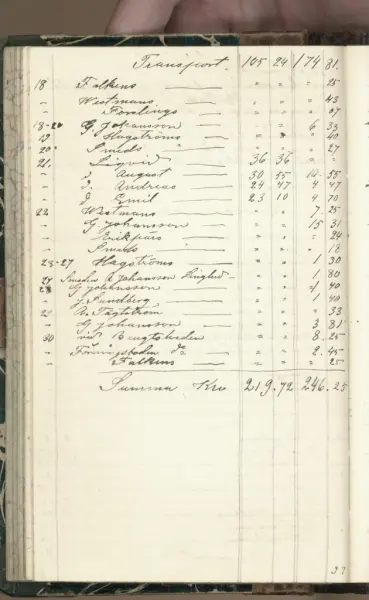 Transport. 105 24 174 81.
18 Falkens — " " " 25
" Westmans — " " " 43
" Forslings — " " " 07
18-20 G. Johansson — " " 6 33
19 Hagströms — " " " 40
20 Smeds — " " " 27
21. Liqvid — 36 36 " "
" d. August — 30 55 10 55
" d. Andreas — 24 47 4 47
" d Emil — 23 10 4 70
22 Westmans — " " 7 25
" G Johansson — " " 15 31
" Erik — " " " 24
" Smeds — " " " 18
23-27 Hagströms — " " 1 30
27 Johansson — " " 1 80
28 G Johansson — " " 1 40
" J. Sundberg — " " 1 40
29 " " " 33
" G Johansson — " " 3 81
30 vid " " 8. 25
" do " " 2. 45
" Falkens — " " " 25
Summa Kr 219.72 246.25
37